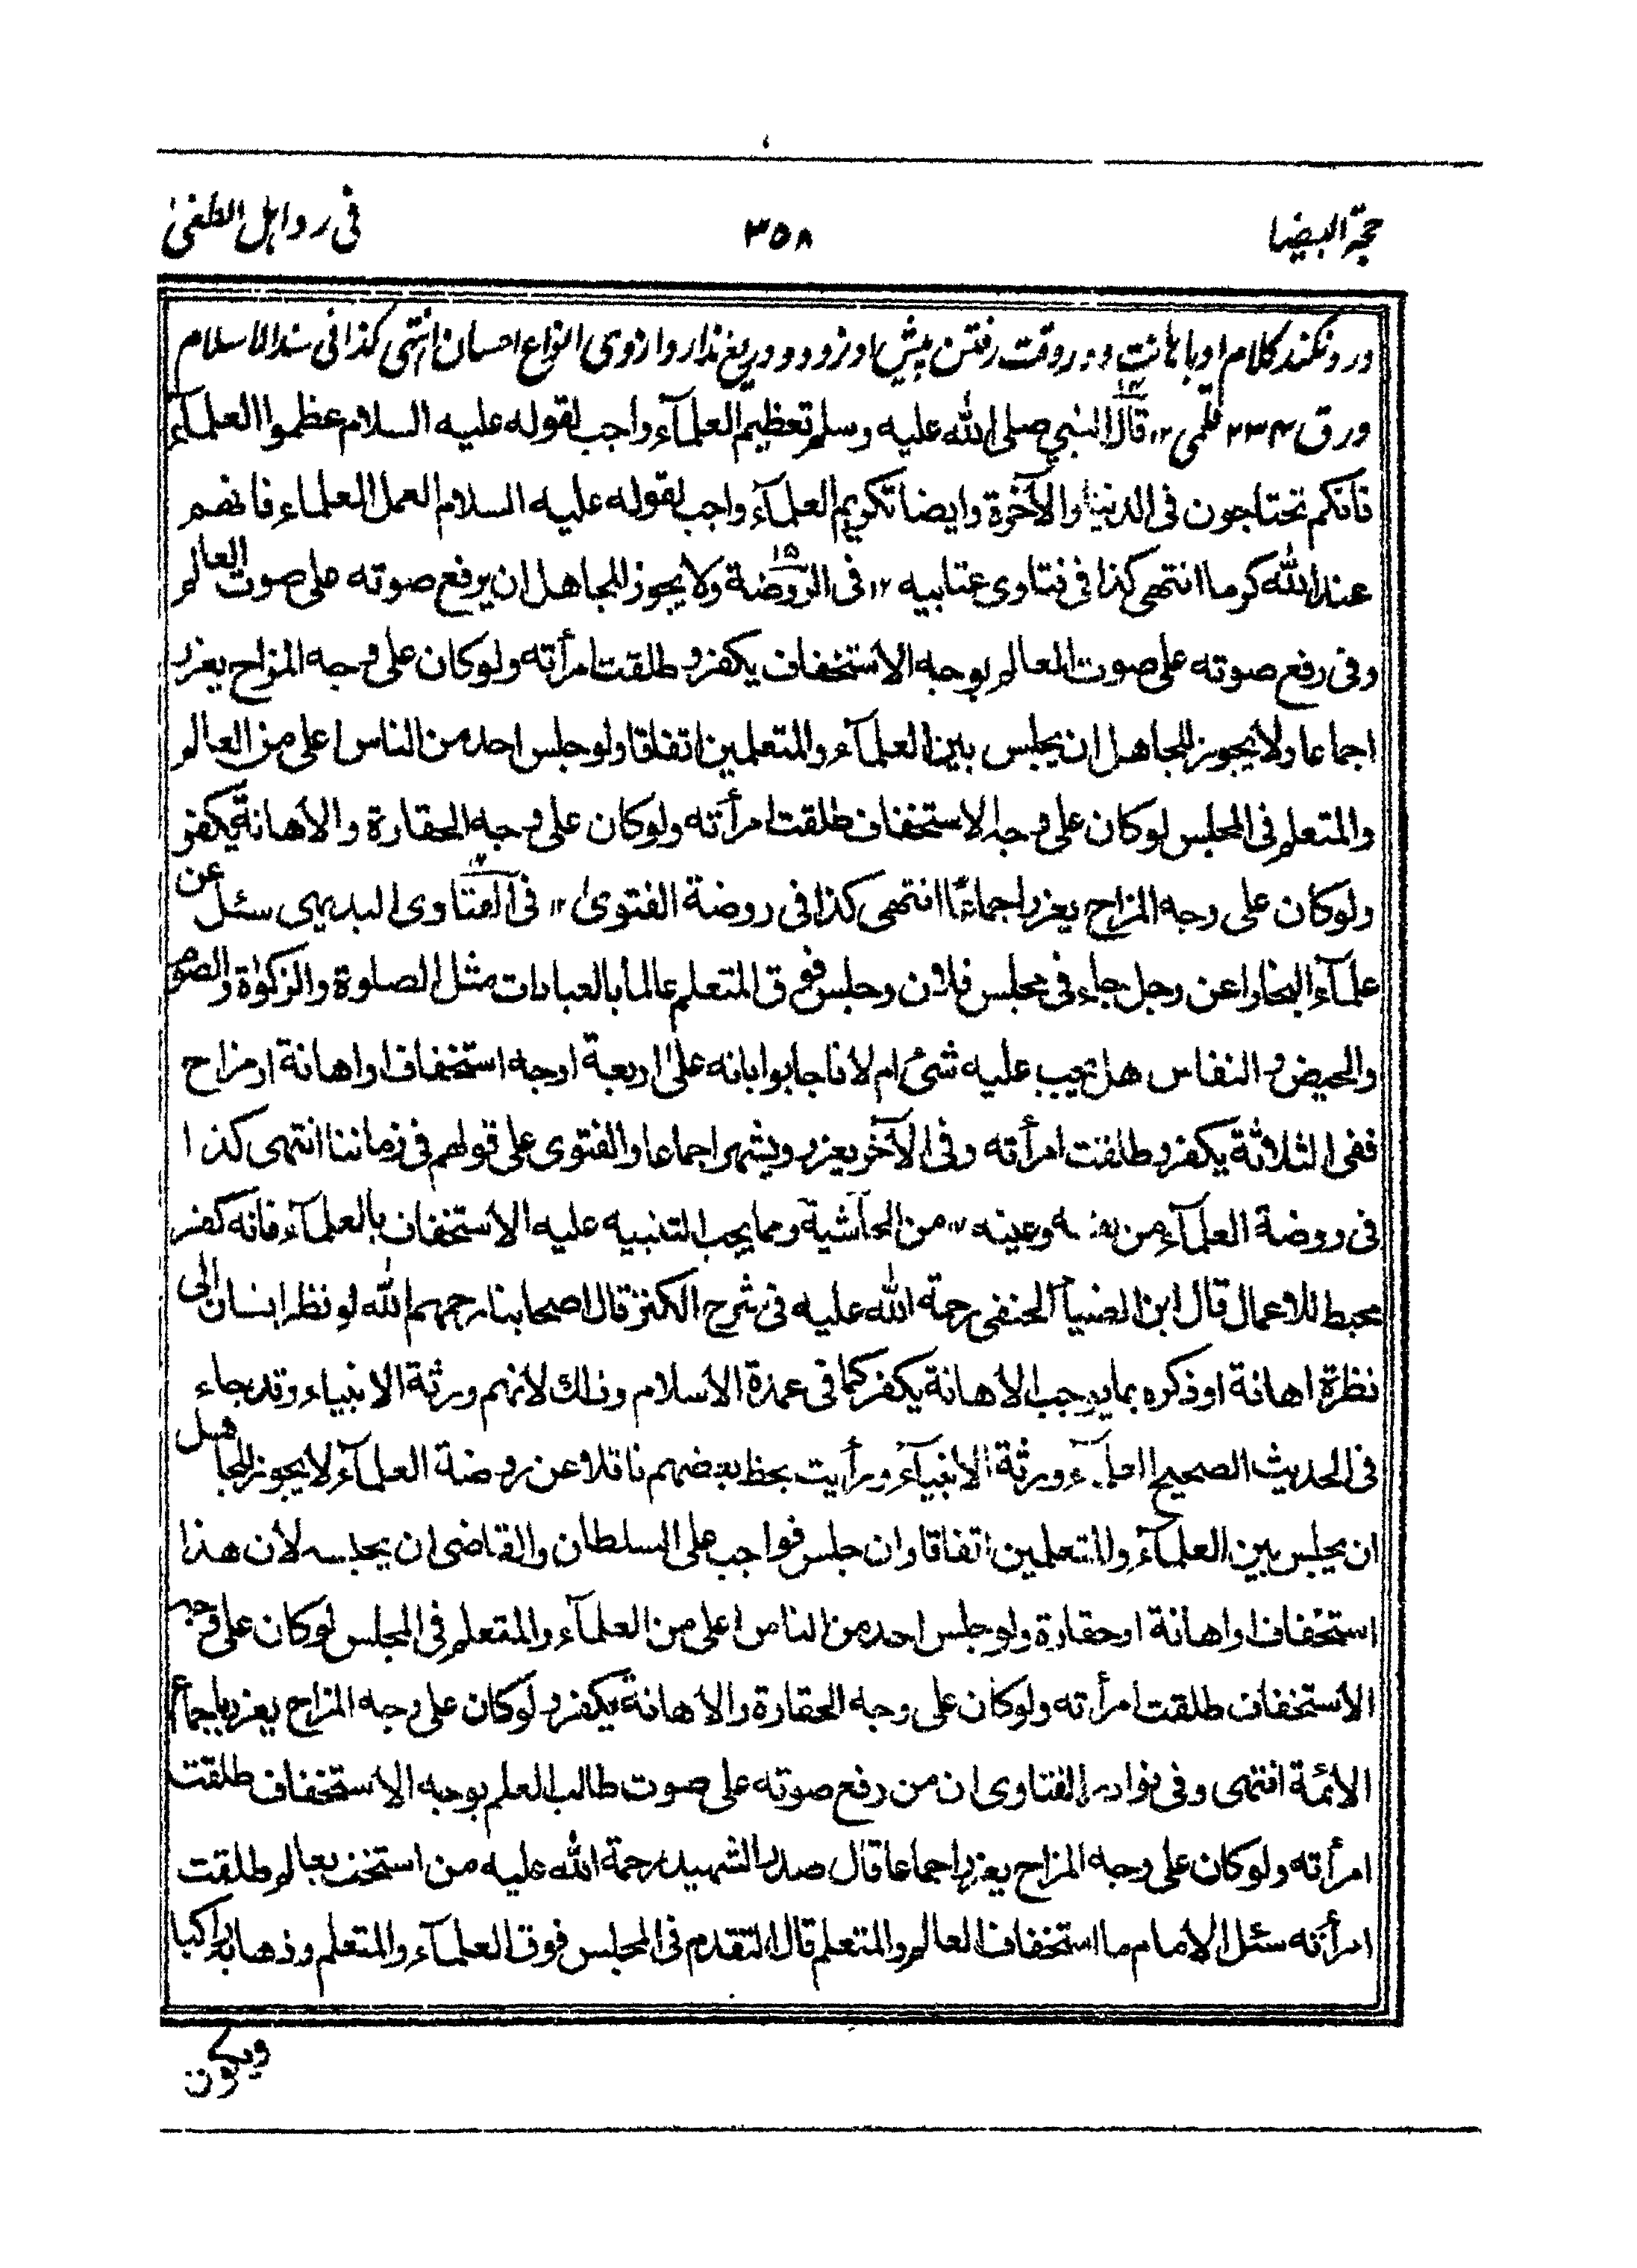 حجة البيضا ٣٥٨ فی رد اہل الطغیٰ
ورد نکند کلام او باہانت ودر وقت رفتن پیش او نزود ودریغ ندارد ازوی انواع احسان انتہی کذا فی سند الاسلام
ورق ٢٣٤ قلمی ١٢ قال النبي صلى الله عليه وسلم تعظيم العلمآء واجب لقوله عليه السلام عظموا العلمآء
فانكم تحتاجون فى الدنيا والآخرة وايضا تكريم العلمآء واجب لقوله عليه السلام العمل العلماء فانهم
عند الله كرما انتهى كذا فى فتاوى عتابيه ١٢ فى الروضة ولا يجوز للجاهل ان يرفع صوته على صوت العالم
وفى رفع صوته على صوت العالم بوجه الاستخفاف يكفر و طلقت امرأته ولو كان على وجه المزاح يعزر
اجماعا ولا يجوز للجاهل ان يجلس بين العلمآء والمتعلمين اتفاقا ولو جلس احد من الناس اعلى من العالم
والمتعلم فى المجلس لو كان على وجه الاستخفاف طلقت امرأته ولو كان على وجه الحقارة والاهانة يكفر
ولو كان على وجه المزاح يعزر اجماعًا انتهى كذا فى روضة الفتوىٰ ١٢ فى الفتاوى البديهى سئل عن
علمآء البخارا عن رجل جاء فى مجلس فلان وجلس فوق المتعلم عالما بالعبادات مثل الصلوة والزكوٰة والصوم
والحيض و النفاس هل يجب عليه شئ ام لا فاجابوا بانه علىٰ اربعة اوجه استخفاف او اهانة او مزاح
ففى الثلاثة يكفر و طلقت امرأته وفى الآخر يعزر ويشهر اجماعا والفتوى على قولهم فى زماننا انتهى كذا
فى روضة العلمآء من وعينه ١٢ من الحآشية ومما يجب التنبيه عليه الاستخفاف بالعلمآء فانه كفر
محبط للاعمال قال ابن الضيآ الحنفى رحمة الله عليه فى شرح الكنز قال اصحابنا رحمهم الله لو نظر انسان الى
نظرة اهانة او ذكره بما يوجب الاهانة يكفر كما فى عمدة الاسلام وذلك لانهم ورثة الانبياء وقد جاء
فى الحديث الصحيح العلمآء ورثة الانبيآء ورأيت بخط بعضهم ناقلا عن روضة العلمآء لا يجوز للجاهل
ان يجلس بين العلمآء والمتعلمين اتفاقا وان جلس فواجب على السلطان والقاضى ان يحبسه لأن هذا
استخفاف او اهانة او حقارة ولو جلس احد من الناس اعلى من العلمآء والمتعلم فى المجلس لو كان على وجه
الاستخفاف طلقت امرأته ولو كان على وجه الحقارة والاهانة يكفر و لو كان على وجه المزاح يعزر باجماع
الائمة انتهى وفى نوادر الفتاوى ان من رفع صوته على صوت طالب العلم بوجه الاستخفاف طلقت
امرأته ولو كان على وجه المزاح يعزر اجماعا قال صدر الشهيد رحمة الله عليه من استخف بعالم طلقت
امرأته سئل الامام ما استخفاف العالم والمتعلم قال التقدم فى المجلس فوق العلمآء والمتعلم وذهابه راكبا
ويكون